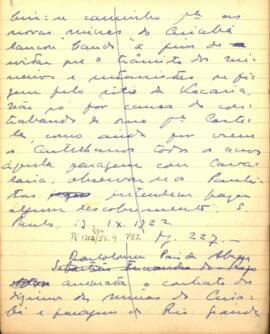 brir: o caminho p.ª as
novas minas de Cuiabá
lançou "bando" a fim de
evitar que o trânsito dos mi-
neiros e viandantes se
fizesse pelo sitio da Vacaria,
não só por causa do con-
trabando de ouro p.ª Caste-
la, como ainda por virem
os Castelhanos todos os anos
áquela paragem com Cava-
laria, observar se os Paulis-
tas pretendem fazer
algum descobrimento. S.
Paulo, 13.IX.1722
Pg. 227.
Bartolomeu Pais de Abreu
Sebastião Fernandes do Rego
arremata o contrato dos
dizimos das minas de Cuia-
bá e paragem do Rio Grande